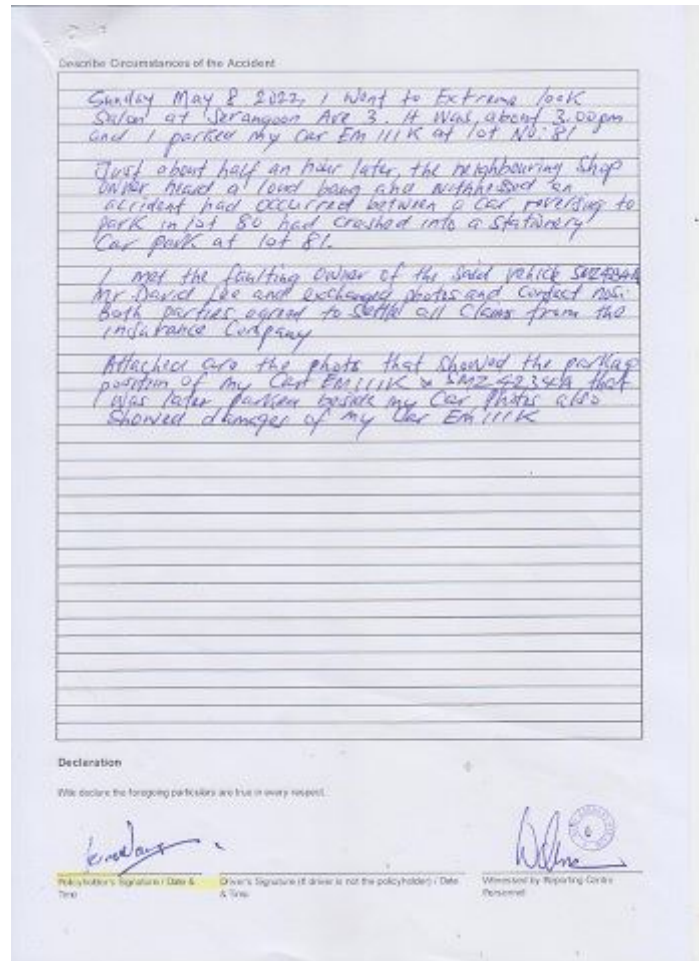 Describe Circumstances of the Accident
Sunday May 8 2022, I went to Extreme look
Salon at Serangoon Ave 3. It was about 3.00pm
and I parked my car EM 111K at lot No: 81
Just about half an hour later, the neighbouring shop
owner heard a loud bang and witnessed an
accident had occurred between a car reversing to
park in lot 80 had crashed into a stationery
Car park at lot 81.
I met the faulting owner of the said vehicle SMZ4234A
Mr David Lee and exchanged photos and contact nos:
Both parties agreed to settle all claims from the
insurance Company
Attached are the photos that showed the parking
position of my Car EM111K & SMZ4234A that
was later parked beside my Car Photos also
showed damages of my Car EM 111K
Declaration
I/We declare the foregoing particulars are true in every respect.
Policyholder's Signature / Date &
Time
Driver's Signature (if driver is not the policyholder) / Date
& Time
Witnessed by Reporting Centre
Personnel